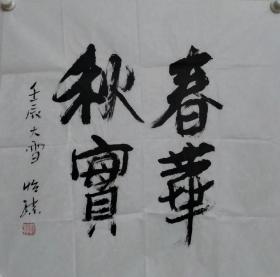 春華
秋實
壬辰大雪